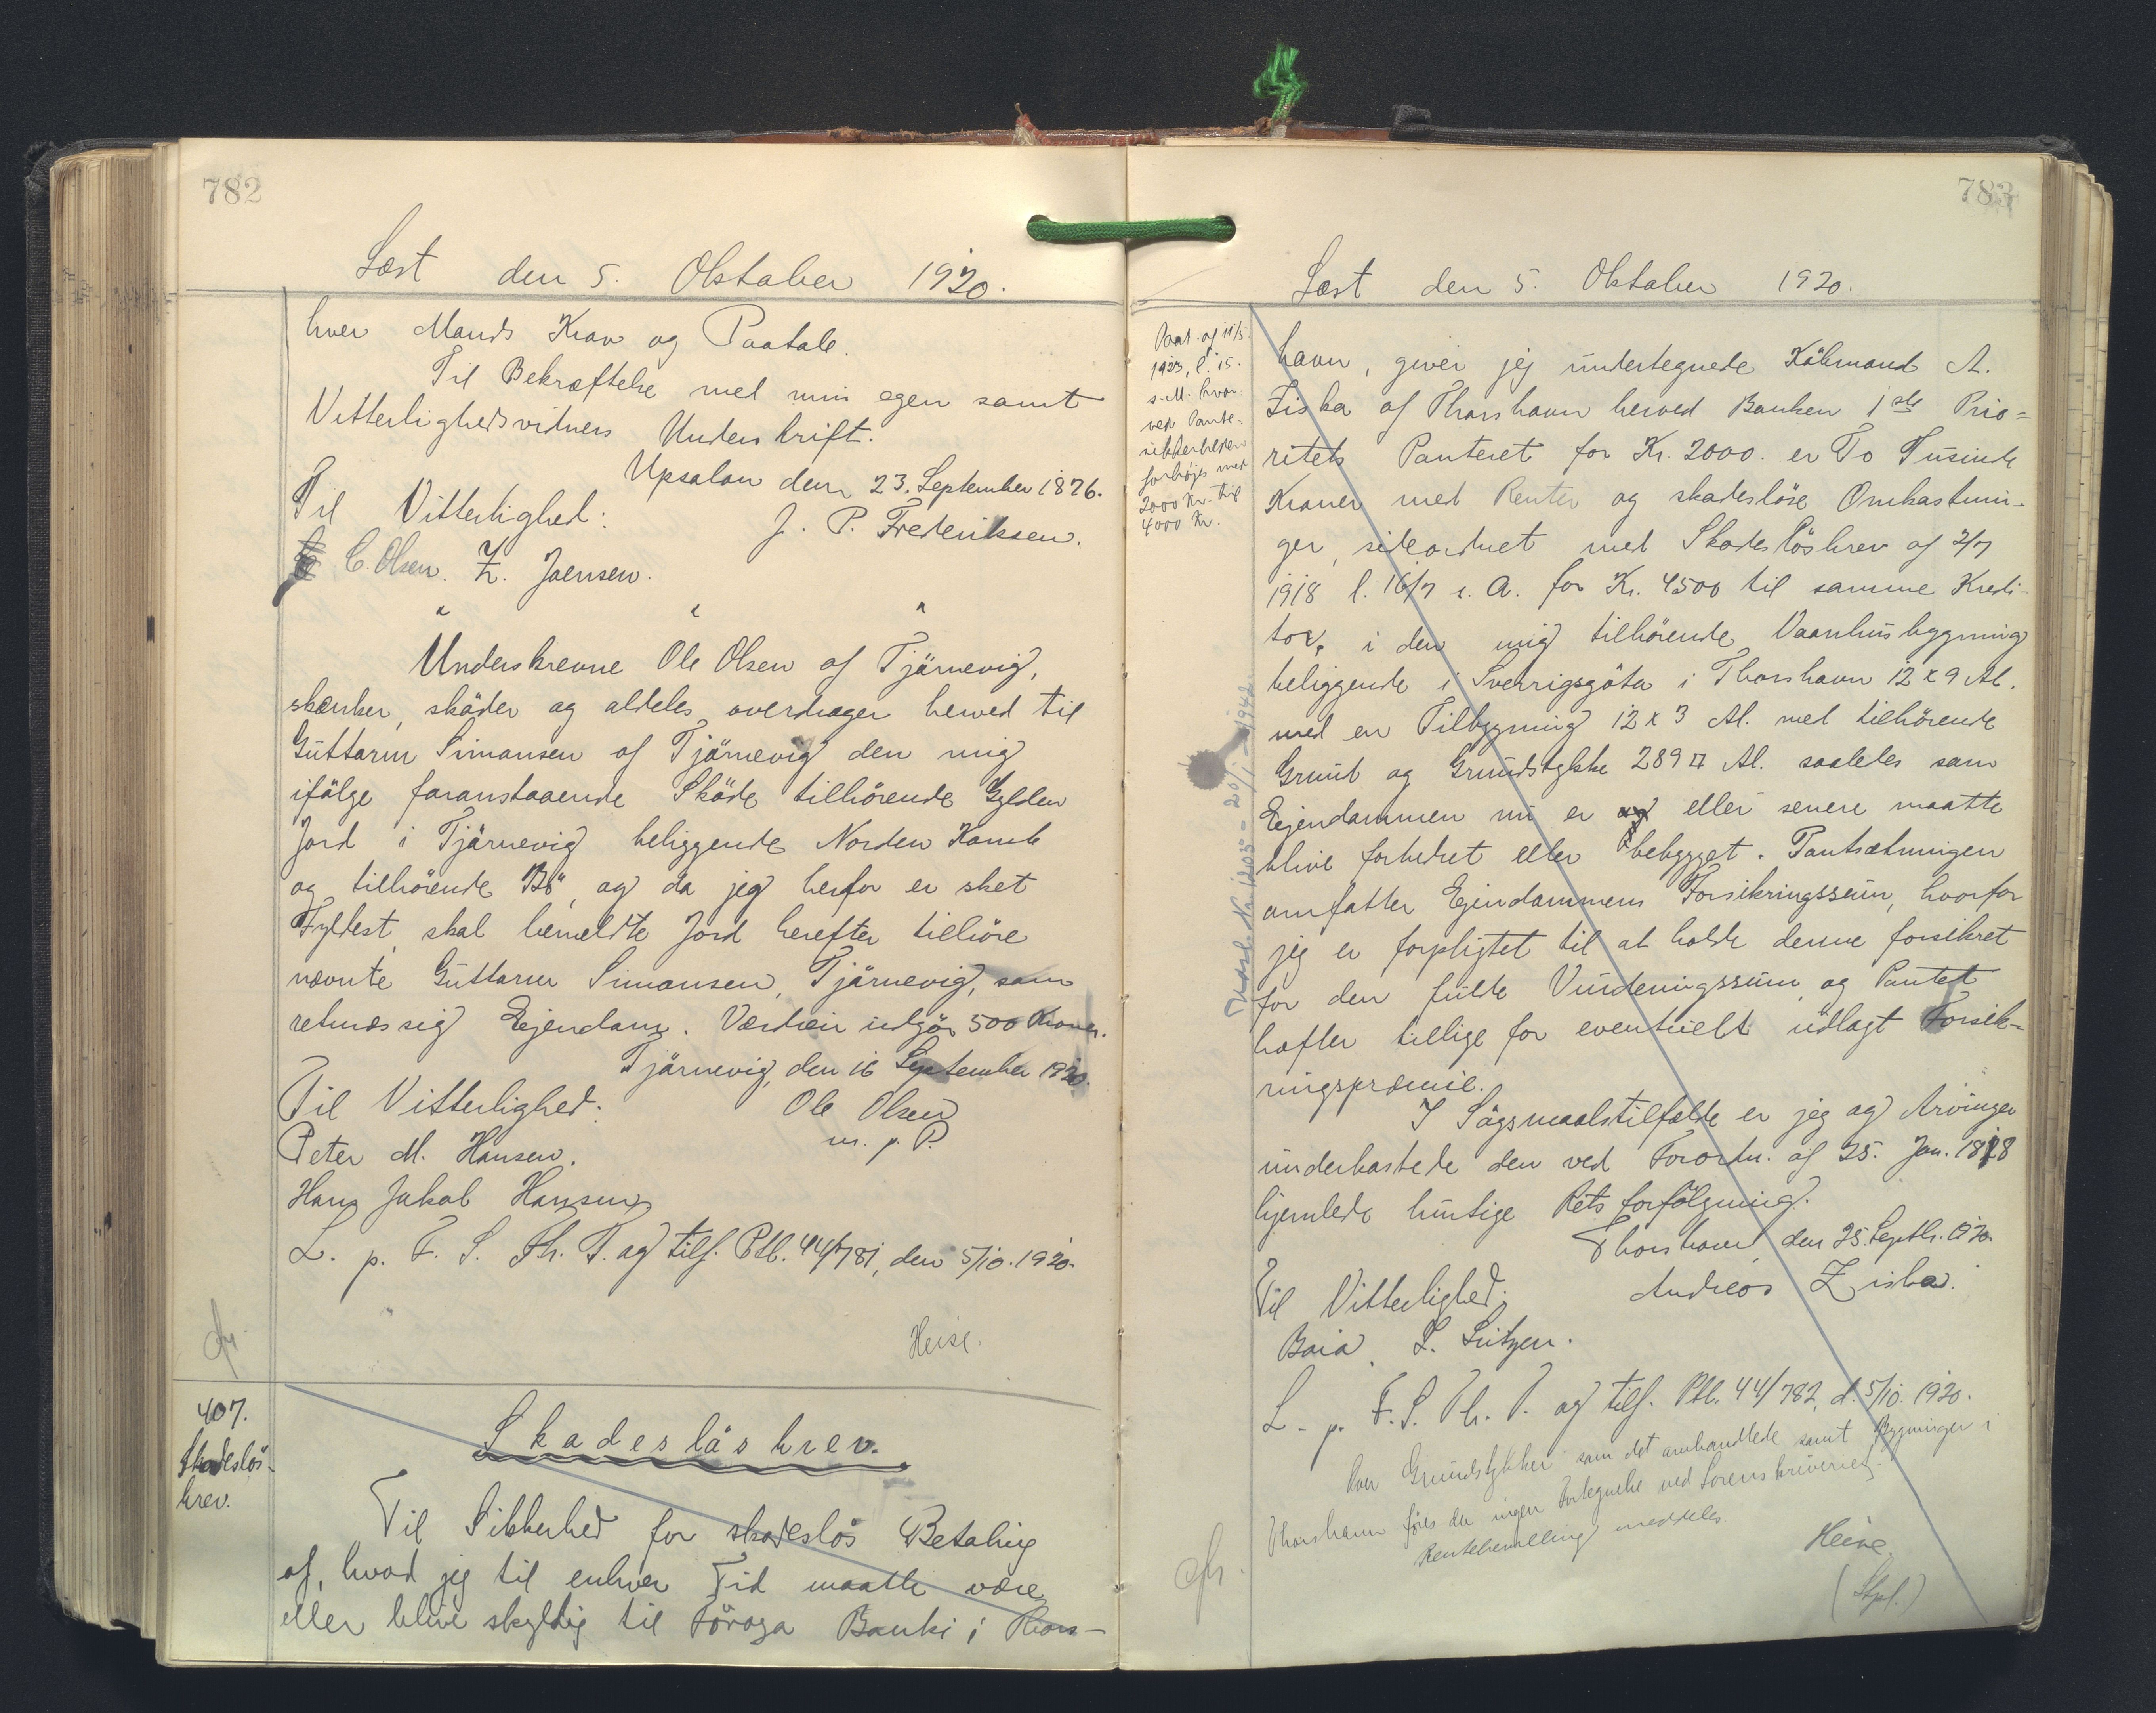 782
Læst den 5. Oktober 1920.
hver Mands Krav og Paatale.
Til Bekræftelse med min egen samt
Vitterlighedsvidners Underskrift.
Upsalon den 23. September 1876.
Til Vitterlighed:
J. P. Frederiksen.
C. Olsen. Z. Joensen.
" " "
Underskrevne Ole Olsen af Tjörnevig,
skænker, sköder og aldeles overdrager herved til
Guttorm Simonsen af Tjörnevig den mig
ifölge foranstaaende Sköde tilhörende Gylden
Jord i Tjörnevig beliggende Norden Kamb
og tilhörende "Bö", og da jeg herfor er sket
Fyldest, skal bemeldte Jord herefter tilhöre
nævnte Guttorm Simonsen, Tjörnevig, som
retmæssig Ejendom. Værdien udgör 500 Kroner.
Tjörnevig, den 16 September 1920.
Til Vitterlighed:
Ole Olsen
m. p. P.
Peter M. Hansen.
Hans Jakob Hansen
L. p. F. S. Th. T. og tilf. Ptb. 44/781, den 5/10. 1920.
Heise.
cfr.
407.
Skadeslös-
brev.
Skadeslösbrev.
Til Sikkerhed for skadeslös Betaling
af, hvad jeg til enhver Tid maatte være
eller blive skyldig til Föroya Banki i Thors-
783
Læst den 5. Oktober 1920.
Paat. af 11/5.
1923, l. 15.
s. M. hvor-
ved Pante-
sikkerheden
forhöjes med
2000 Kr. til
4000 Kr.
havn, giver jeg undertegnede Köbmand A.
Ziska af Thorshavn herved Banken 1ste Prio=
ritets Panteret for Kr. 2000. er To Tusinde
Kroner med Renter og skadeslöse Omkostnin-
ger, sideordnet med Skadeslösbrev af 2/7
1918 l. 16/7 s. A. for Kr. 4500 til samme Kredi-
tor, i den mig tilhörende Vaanhusbygning
beliggende i Sverrisgöta i Thorshavn 12 x 9 Al.
med en Tilbygning 12 x 3 Al. med tilhörende
Grund og Grundstykke 289 □ Al. saaledes som
Ejendommen nu er eller senere maatte
blive forbedret eller bebygget. Pantsætningen
omfatter Ejendommens Forsikringssum, hvorfor
jeg er forpligtet til at holde denne forsikret
for den fulde Vurderingssum, og Pantet
hæfter tillige for eventuelt udlagt Forsik=
ringspræmie.
I Sögsmaalstilfælde er jeg og Arvinger
underkastede den ved Forordn. af 25. Jan. 1828
hjemlede hurtige Retsforfölgning.
Thorshavn, den 25. Septbr. 1920.
Til Vitterlighed:
Andreas Ziska.
Baia. L. Lützen.
L. p. F. S. Th. T. og tilf. Ptb. 44/782, d. 5/10. 1920.
Over Grundstykker som det omhandlede samt Bygninger i
Thorshavn föres der ingen Fortegnelse ved Sorenskriveriet.
Rentehemmeling meddeles
Heise.
(Stpl.)
cfr.